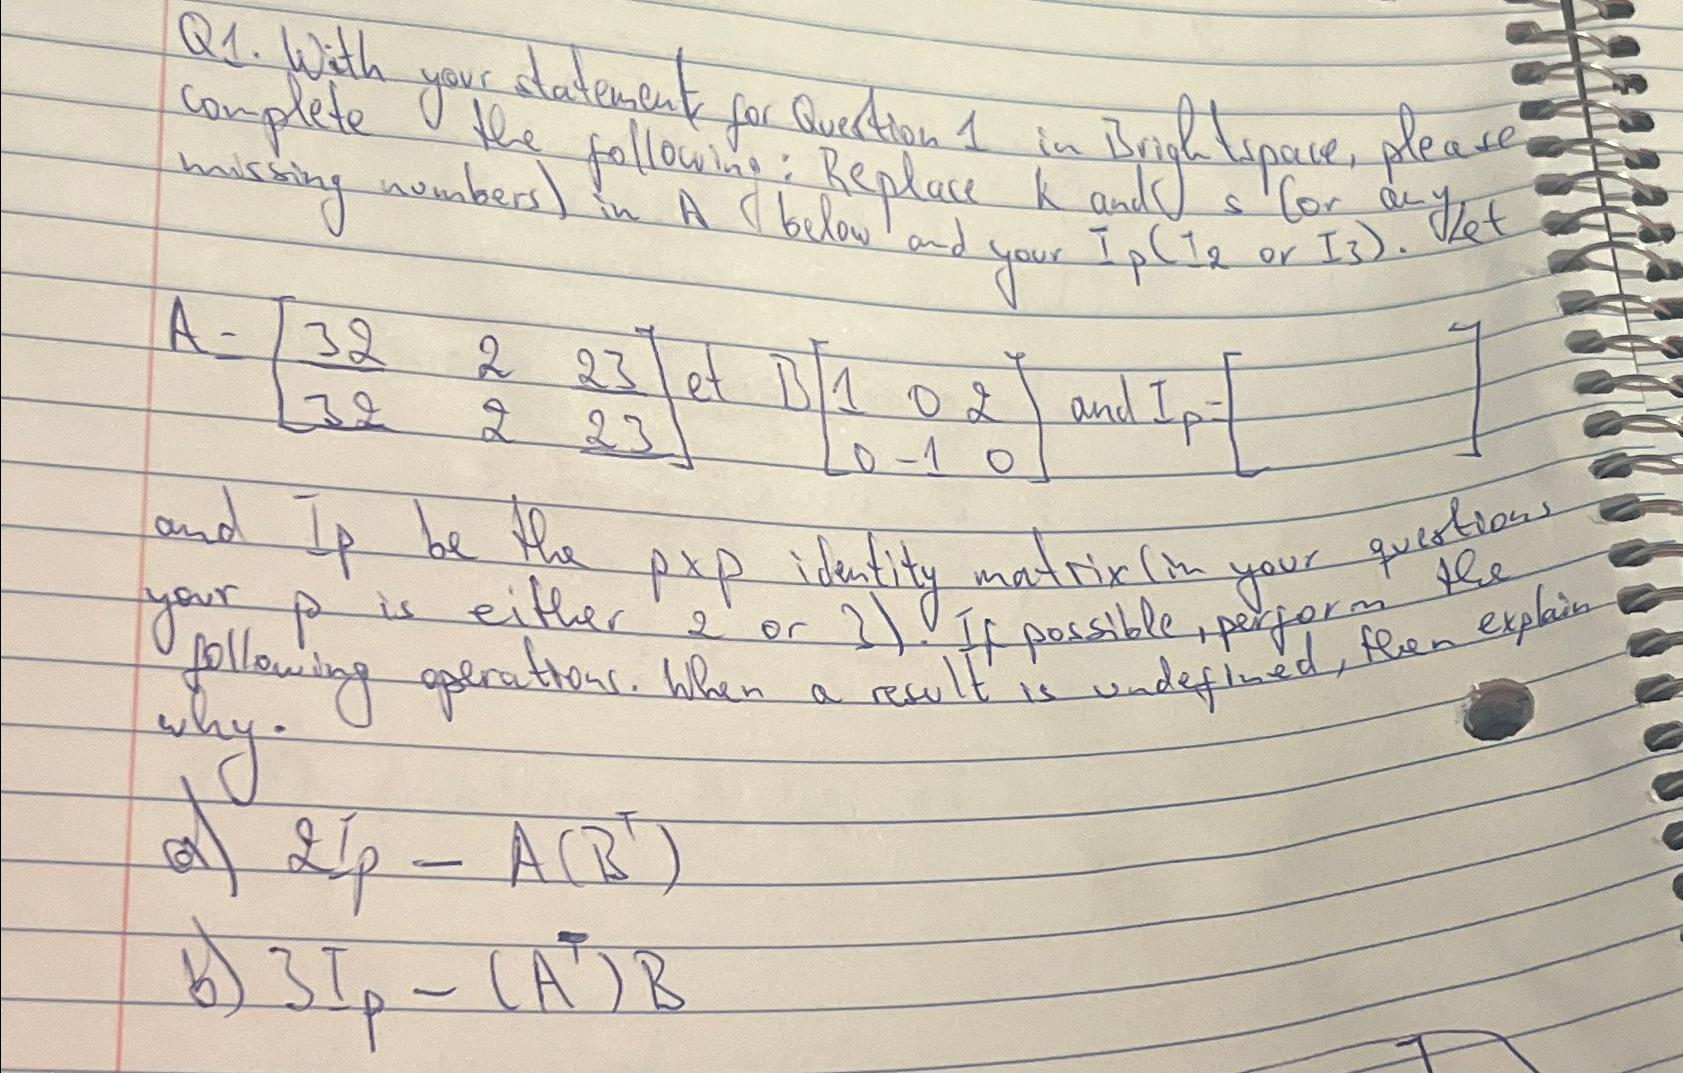 Q1. With your statement for Question 1 in Brightspace, please
complete the following: Replace k and s (or any
missing numbers) in A below and your Ip (I2 or I3). Let
A = [32 2 23] et B [1 0 2] and Ip = [ ]
[32 2 23] [0 -1 0]
and Ip be the pxp identity matrix (in your questions
your p is either 2 or 3). If possible, perform the
following operations. When a result is undefined, then explain
why.
a) 2Ip - A(B^T)
b) 3Ip - (A^T)B